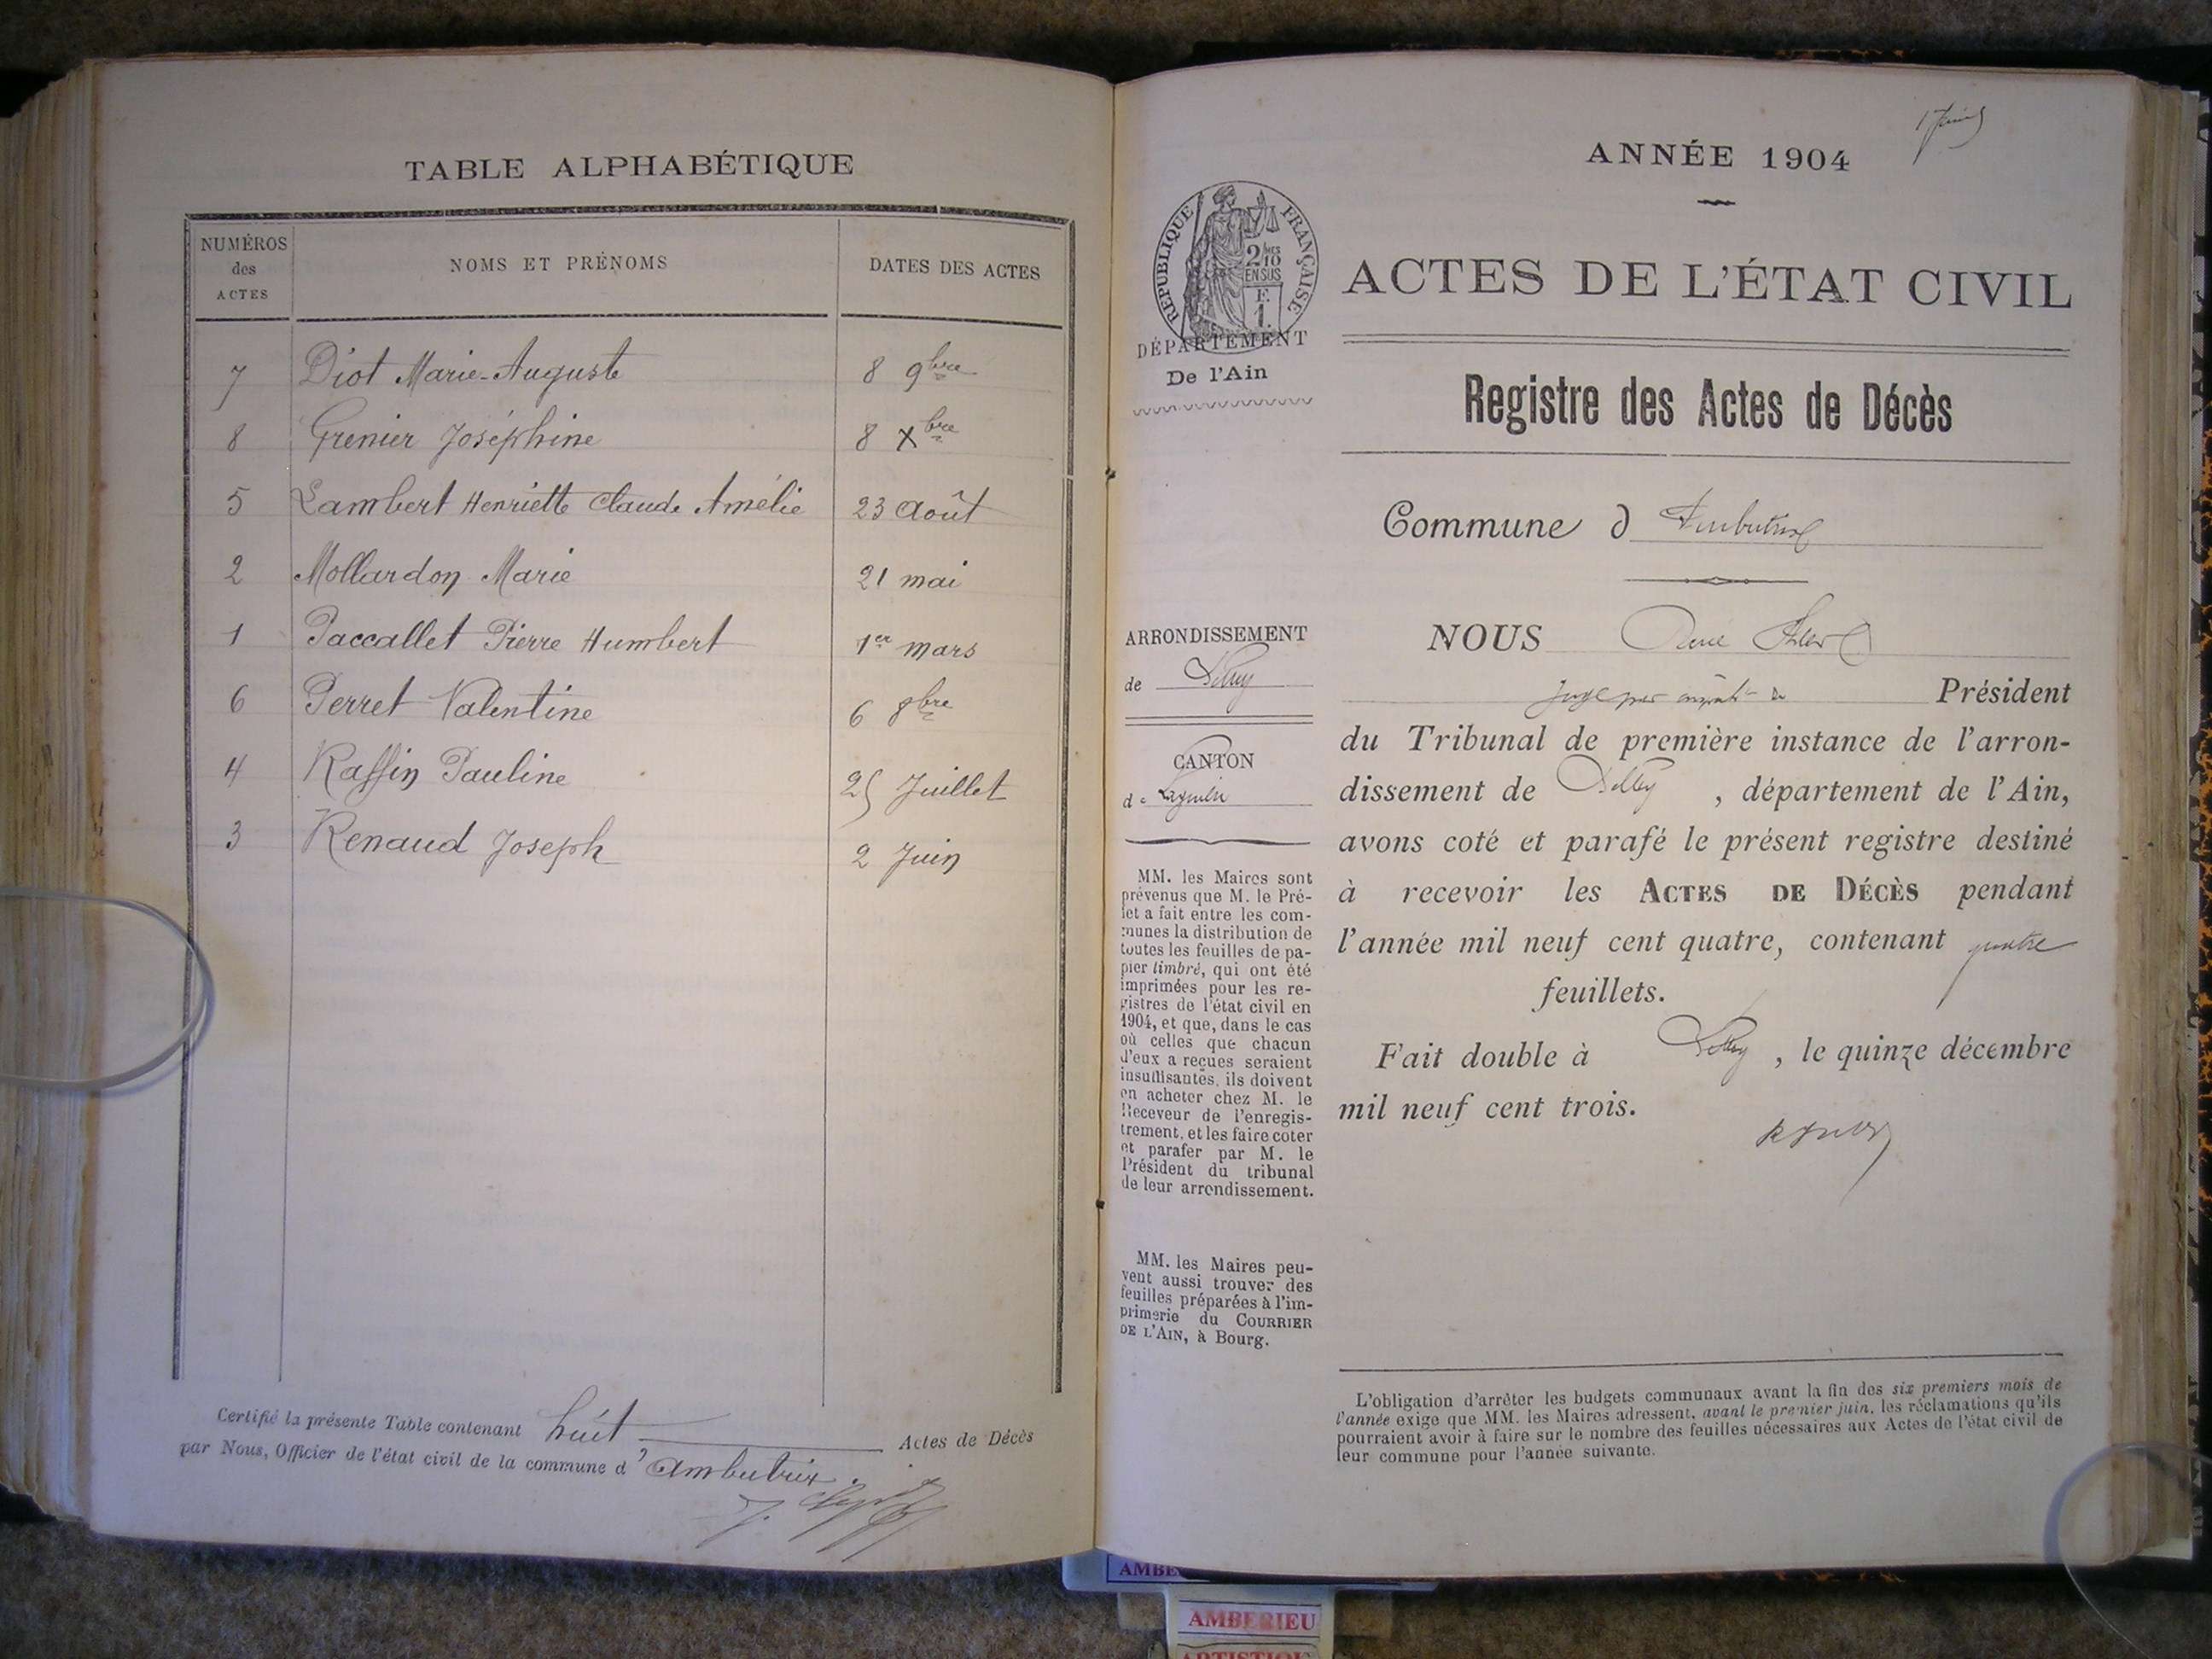 TABLE ALPHABÉTIQUE
NUMÉROS des ACTES
NOMS ET PRÉNOMS
DATES DES ACTES
7 Diot Marie-Auguste 8 9bre
8 Grenier Joséphine 8 Xbre
5 Lambert Henriette Claude Amélie 23 Août
2 Mollardon Marie 21 mai
1 Paccallet Pierre Humbert 1er mars
6 Perret Valentine 6 8bre
4 Raffin Pauline 25 Juillet
3 Renaud Joseph 2 Juin
Certifié la présente Table contenant huit Actes de Décès
par Nous, Officier de l'état civil de la commune d'Ambutrix.
ANNÉE 1904
RÉPUBLIQUE FRANÇAISE
2/10 EN SUS
F. 1.
DÉPARTEMENT
De l'Ain
ACTES DE L'ÉTAT CIVIL
Registre des Actes de Décès
Commune d Ambutrix
ARRONDISSEMENT
de Belley
CANTON
de Lagnieu
MM. les Maires sont
prévenus que M. le Pré-
fet a fait entre les com-
munes la distribution de
toutes les feuilles de pa-
pier timbré, qui ont été
imprimées pour les re-
gistres de l'état civil en
1904, et que, dans le cas
où celles que chacun
d'eux a reçues seraient
insuffisantes, ils doivent
en acheter chez M. le
Receveur de l'enregis-
trement, et les faire coter
et parafer par M. le
Président du tribunal
de leur arrondissement.
MM. les Maires peu-
vent aussi trouver des
feuilles préparées à l'im-
primerie du COURRIER
DE L'AIN, à Bourg.
NOUS René
Juge par Président
du Tribunal de première instance de l'arron-
dissement de Belley, département de l'Ain,
avons coté et parafé le présent registre destiné
à recevoir les ACTES DE DÉCÈS pendant
l'année mil neuf cent quatre, contenant quatre
feuillets.
Fait double à Belley, le quinze décembre
mil neuf cent trois.
L'obligation d'arrêter les budgets communaux avant la fin des six premiers mois de
l'année exige que MM. les Maires adressent, avant le premier juin, les réclamations qu'ils
pourraient avoir à faire sur le nombre des feuilles nécessaires aux Actes de l'état civil de
leur commune pour l'année suivante.
AMBE
AMBERIEU